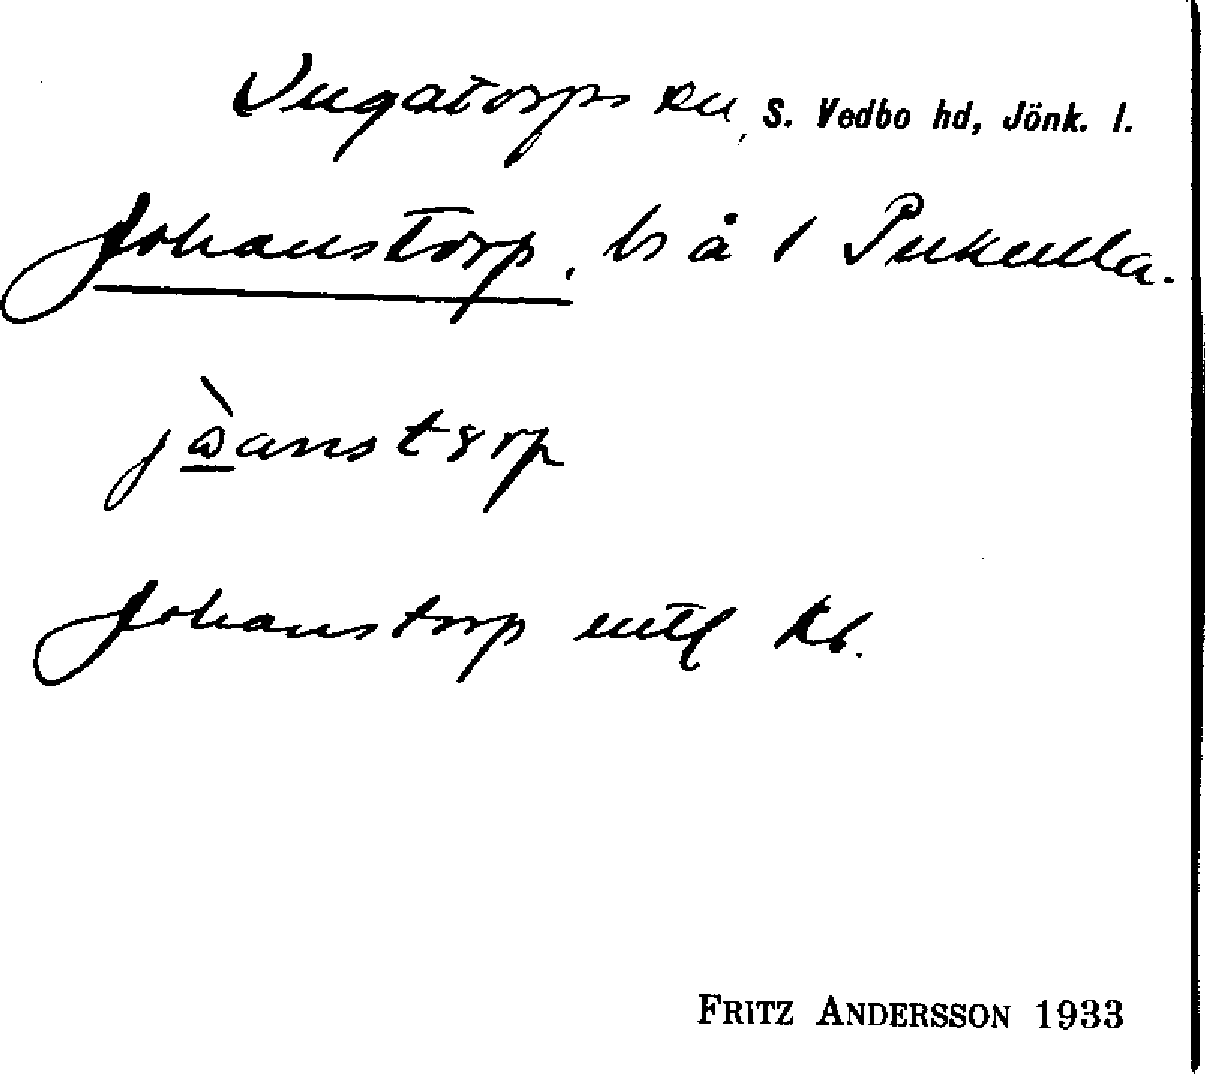 Ingatorps sn, S. Vedbo hd, Jönk. l.
Johanstorp, bs å 1 Pukulla.
Johanstorp mtl kb.
FRITZ ANDERSSON 1933